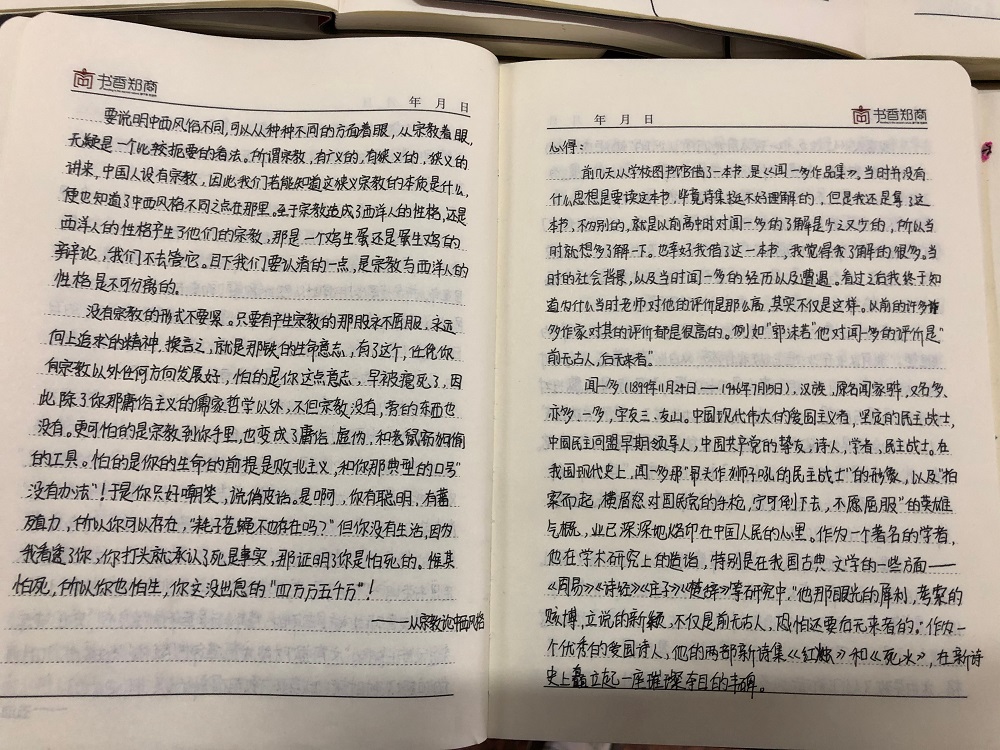 书香郑商
年 月 日
要说明中西风俗不同,可以从种种不同的方面着眼,从宗教着眼,
无疑是一个比较扼要的看法。所谓宗教,有广义的,有狭义的,狭义的
讲来,中国人没有宗教,因此我们若能知道这狭义宗教的本质是什么,
便也知道了中西风格不同之点在那里。至于宗教造成了西洋人的性格,还是
西洋人的性格产生了他们的宗教,那是一个鸡生蛋还是蛋生鸡的
辩论,我们不去管它。目下我们要认清的一点,是宗教与西洋人的
性格是不可分离的。
没有宗教的形式不要紧。只要有产生宗教的那股永不屈服,永远
向上追求的精神,换言之,就是那铁的生命意志,有了这个,任凭你
向宗教以外任何方向发展好,怕的是你这点意志,早被瘪死了,因
此除了你那庸俗主义的儒家哲学以外,不但宗教没有,旁的东西也
没有。更可怕的是宗教到你手里,也变成了庸俗,虚伪,和老鼠
的工具。怕的是你的生命的前提是败北主义,和你那典型的口号"
没有办法"!于是你只好嘲笑,说俏皮话。是啊,你有聪明,有蕃
殖力,所以你可以存在,"耗子苍蝇不也存在吗?"但你没有生活,因为
我看透了你,你打头就承认了死是事实,那证明了你是怕死的。惟其
怕死,所以你也怕生,你这没出息的"四万万五千万"!
——从宗教论中西风俗
年 月 日
书香郑商
心得:
前几天从学校图书馆借了一本书,是《闻一多作品集》。当时并没有
什么思想是要读这本书,毕竟诗集挺不好理解的,但是我还是拿了这
本书,不为别的,就是以前高中时对闻一多的了解是少之又少的,所以当
时就想多了解一下。也幸好我借了这一本书,我觉得我了解的很多。当
时的社会背景,以及当时闻一多的经历以及遭遇。看过之后我终于知
道为什么当时老师对他的评价是那么高,其实不仅是这样。以前的许多
多作家对其的评价都是很高的。例如"郭沫若"他对闻一多的评价是"
前无古人,后无来者"。
闻一多(1899年11月24日——1946年7月15日),汉族,原名闻家骅,又名多、
亦多、一多,字友三、友山。中国现代伟大的爱国主义者,坚定的民主战士,
中国民主同盟早期领导人,中国共产党的挚友,诗人,学者,民主战士。在
我国现代史上,闻一多那"昂头作狮子吼的民主战士"的形象,以及"拍
案而起,横眉怒对国民党的手枪,宁可倒下去,不愿屈服"的英雄
气概,业已深深地烙印在中国人民的心里。作为一个著名的学者,
他在学术研究上的造诣,特别是在我国古典文学的一些方面——
《周易》《诗经》《庄子》《楚辞》等研究中,"他那眼光的犀利,考案的
赅博,立说的新颖,不仅是前无古人,恐怕还要后无来者的。"作为一
个优秀的爱国诗人,他的两部新诗集《红烛》和《死水》,在新诗
史上矗立起一座璀璨夺目的丰碑。